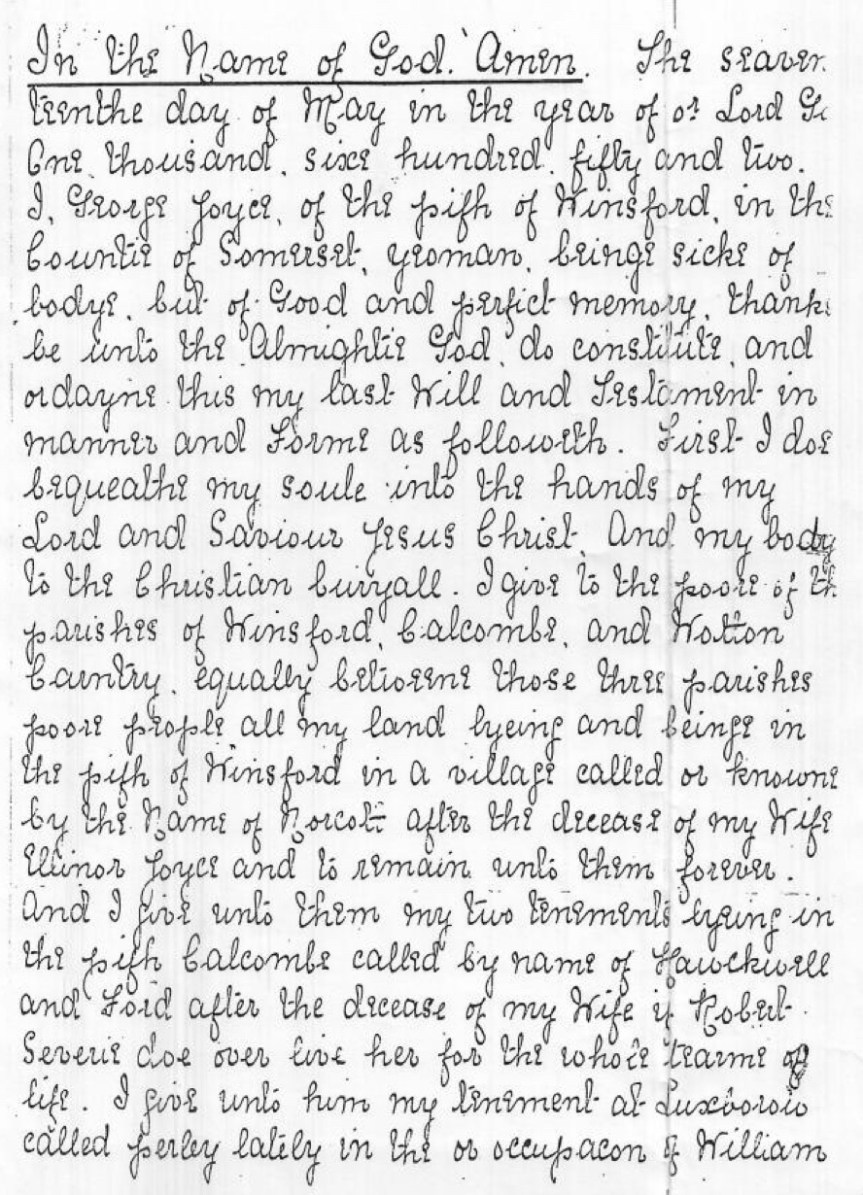 In the Name of God. Amen. The seaven
teenthe day of May in the year of or Lord
One thousand, sixe hundred, fifty and two.
I, George Joyce, of the pish of Winsford, in the
Countie of Somerset, yeoman, beinge sicke of
bodye, but of Good and perfict memory, thanks
be unto the Almightie God, do constitute, and
ordayne this my last Will and Testament in
manner and Forme as followeth. First I doe
bequeathe my soule into the hands of my
Lord and Saviour Jesus Christ, And my body
to the Christian buryall. I give to the poore of th
parishes of Winsford, Calcombe, and Wotton
Cawntry, equally betweene those three parishes
poore people all my land lyeing and beinge in
the pish of Winsford in a village called or knowne
by the Name of Norcott after the decease of my Wife
Ellinor Joyce and to remain unto them forever.
And I give unto them my two tenements lyeing in
the pish Calcombe called by name of Hawckwell
and Ford after the decease of my Wife if Robert
Severie doe over live her for the whole tearme of
life. I give unto him my tenement at Luxborow
called perley lately in the or occupacon of William